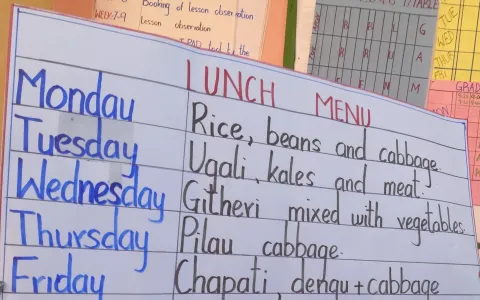 Booking of lesson observation
WEEK-7-9
Lesson observation
TABLE
LUNCH MENU
Monday Rice, beans and cabbage.
Tuesday Ugali, kales and meat.
Wednesday Githeri mixed with vegetables.
Thursday Pilau cabbage.
Friday Chapati, dengu + cabbage
TUE
WED
THU
FRI
GRAD